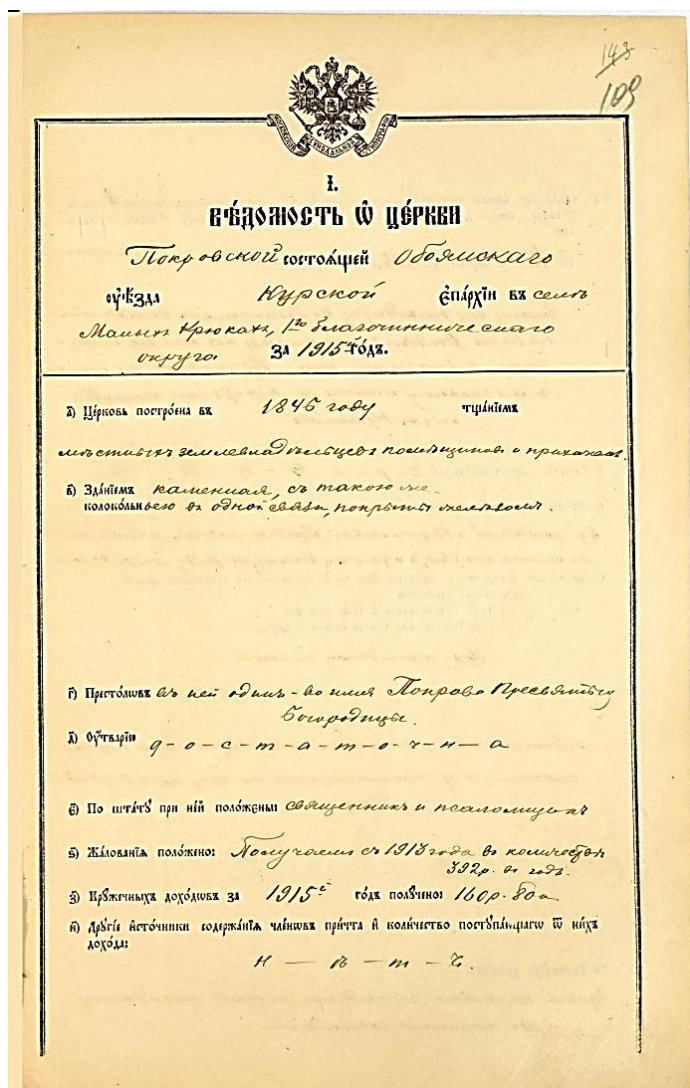 148
109
МОСКОВСКАЯ СѴНОДАЛЬНАЯ ТѴПОГРАФІЯ
І.
ВѢ́ДОМОСТЬ Ѡ҆ ЦЕ́РКВИ
Покровской состоѧ́щей Обоянскаго
ᲂу҆ѣ́зда Курской є҆па́рхїи въ селѣ
Малыхъ Крюкахъ, 1го благочинническаго
округа. за 1915й го́дъ.
а҃) Це́рковь постро́ена въ 1846 году тща́нїемъ
мѣстныхъ землевладѣльцевъ помѣщиковъ и прихожанъ.
в҃) Зда́нїемъ каменная, съ такою же
колоко́льнею въ одной связи, покрыты желѣзомъ.
г҃) Престо́лѡвъ въ ней одинъ - во имя Покрова Пресвятыя
Богородицы.
д҃) Оу҆́тварїю д-о-с-т-а-т-о-ч-н-а
є҃) По шта́тꙋ при не́й поло́жены: священникъ и псаломщикъ
ѕ҃) Жа́лованїѧ поло́жено: Получаемъ съ 1913 года въ количествѣ
392 р. въ годъ.
з҃) Крꙋ́жечныхъ дохо́дѡвъ за 1915й го́дъ полꙋ́чено: 160 р. 80 к.
и҃) Дрꙋгі́е и҆сто́чники содержа́нїѧ чле́нѡвъ при́чта и҆ коли́чество постꙋпа́ющагѡ ѿ ни́хъ
дохо́да:
н — ѣ — т — ъ.